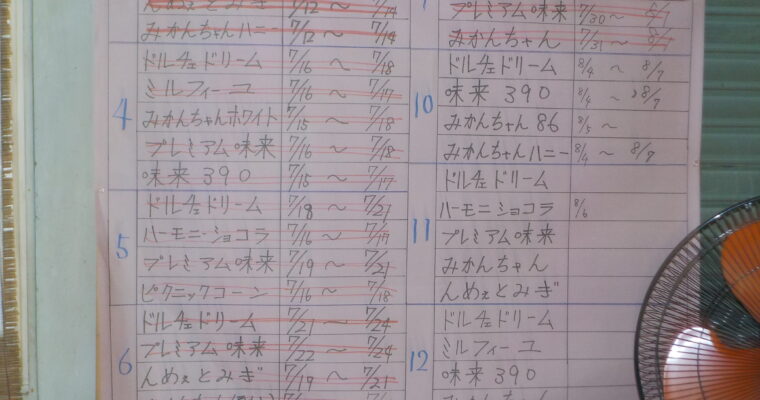 んめぇとみぎ 7/12 ～ 7/14
みかんちゃんハニー 7/12 ～ 7/14
4
ドルチェドリーム 7/16 ～ 7/18
ミルフィーユ 7/16 ～ 7/17
みかんちゃんホワイト 7/15 ～ 7/18
プレミアム味来 7/16 ～ 7/18
味来390 7/15 ～ 7/17
5
ドルチェドリーム 7/18 ～ 7/21
ハーモニーショコラ 7/16 ～ 7/17
プレミアム味来 7/19 ～ 7/21
ピクニックコーン 7/16 ～ 7/18
6
ドルチェドリーム 7/21 ～ 7/24
プレミアム味来 7/22 ～ 7/24
んめぇとみぎ 7/19 ～ 7/21
プレミアム味来 7/30 ～ 8/1
みかんちゃん 7/31 ～ 8/1
10
ドルチェドリーム 8/4 ～ 8/7
味来390 8/4 ～ 8/7
みかんちゃん86 8/5 ～
みかんちゃんハニー 8/4 ～ 8/7
11
ドルチェドリーム
ハーモニショコラ 8/6
プレミアム味来
みかんちゃん
んめぇとみぎ
12
ドルチェドリーム
ミルフィーユ
味来390